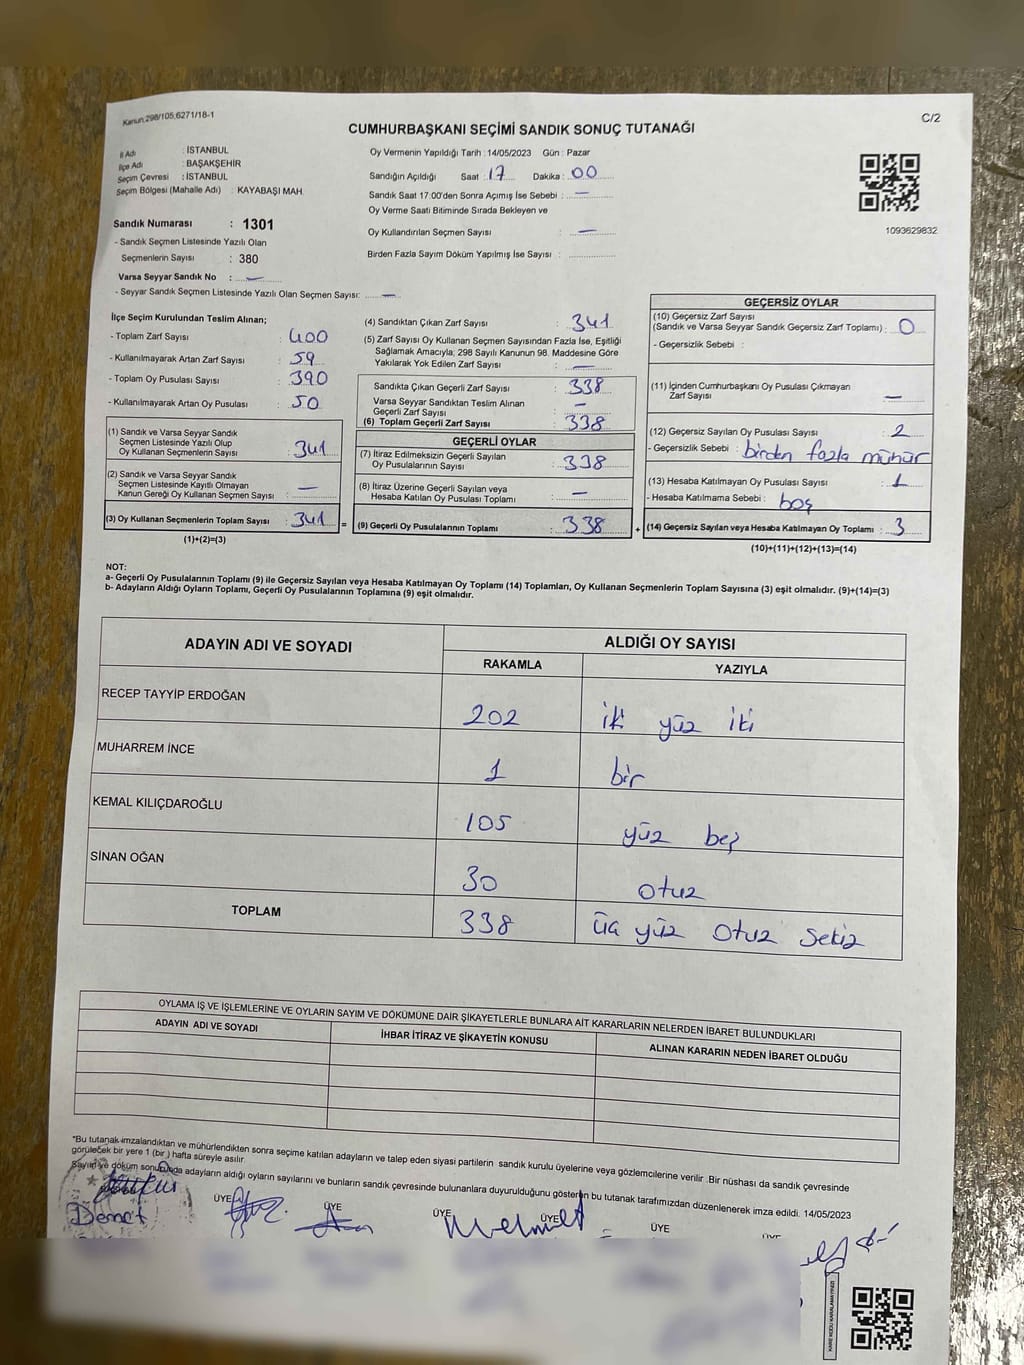 Kanun,298/105,6271/18-1
C/2
CUMHURBAŞKANI SEÇİMİ SANDIK SONUÇ TUTANAĞI
İl Adı : İSTANBUL
İlçe Adı : BAŞAKŞEHİR
Seçim Çevresi : İSTANBUL
Seçim Bölgesi (Mahalle Adı) : KAYABAŞI MAH.
Oy Vermenin Yapıldığı Tarih : 14/05/2023 Gün : Pazar
Sandığın Açıldığı Saat : 17 Dakika : 00
Sandık Saat 17:00'den Sonra Açımış İse Sebebi : —
Oy Verme Saati Bitiminde Sırada Bekleyen ve
Oy Kullandırılan Seçmen Sayısı : —
Birden Fazla Sayım Döküm Yapılmış İse Sayısı :
1093629832
Sandık Numarası : 1301
- Sandık Seçmen Listesinde Yazılı Olan
Seçmenlerin Sayısı : 380
Varsa Seyyar Sandık No : —
- Seyyar Sandık Seçmen Listesinde Yazılı Olan Seçmen Sayısı: —
İlçe Seçim Kurulundan Teslim Alınan;
- Toplam Zarf Sayısı : 400
- Kullanılmayarak Artan Zarf Sayısı : 59
- Toplam Oy Pusulası Sayısı : 390
- Kullanılmayarak Artan Oy Pusulası : 50
(1) Sandık ve Varsa Seyyar Sandık
Seçmen Listesinde Yazılı Olup
Oy Kullanan Seçmenlerin Sayısı : 341
(2) Sandık ve Varsa Seyyar Sandık
Seçmen Listesinde Kayıtlı Olmayan
Kanun Gereği Oy Kullanan Seçmen Sayısı : —
(3) Oy Kullanan Seçmenlerin Toplam Sayısı : 341 =
(1)+(2)=(3)
(4) Sandıktan Çıkan Zarf Sayısı : 341
(5) Zarf Sayısı Oy Kullanan Seçmen Sayısından Fazla İse, Eşitliği
Sağlamak Amacıyla; 298 Sayılı Kanunun 98. Maddesine Göre
Yakılarak Yok Edilen Zarf Sayısı : —
Sandıkta Çıkan Geçerli Zarf Sayısı : 338
Varsa Seyyar Sandıktan Teslim Alınan
Geçerli Zarf Sayısı : —
(6) Toplam Geçerli Zarf Sayısı : 338
GEÇERLİ OYLAR
(7) İtiraz Edilmeksizin Geçerli Sayılan
Oy Pusulalarının Sayısı : 338
(8) İtiraz Üzerine Geçerli Sayılan veya
Hesaba Katılan Oy Pusulası Toplamı : —
(9) Geçerli Oy Pusulalarının Toplamı : 338 +
GEÇERSİZ OYLAR
(10) Geçersiz Zarf Sayısı
(Sandık ve Varsa Seyyar Sandık Geçersiz Zarf Toplamı) : 0
- Geçersizlik Sebebi :
(11) İçinden Cumhurbaşkanı Oy Pusulası Çıkmayan
Zarf Sayısı : —
(12) Geçersiz Sayılan Oy Pusulası Sayısı : 2
- Geçersizlik Sebebi : birden fazla mühür
(13) Hesaba Katılmayan Oy Pusulası Sayısı : 1
- Hesaba Katılmama Sebebi : boş
(14) Geçersiz Sayılan veya Hesaba Katılmayan Oy Toplamı : 3
(10)+(11)+(12)+(13)=(14)
NOT:
a- Geçerli Oy Pusulalarının Toplamı (9) ile Geçersiz Sayılan veya Hesaba Katılmayan Oy Toplamı (14) Toplamları, Oy Kullanan Seçmenlerin Toplam Sayısına (3) eşit olmalıdır. (9)+(14)=(3)
b- Adayların Aldığı Oyların Toplamı, Geçerli Oy Pusulalarının Toplamına (9) eşit olmalıdır.
ADAYIN ADI VE SOYADI ALDIĞI OY SAYISI
RAKAMLA YAZIYLA
RECEP TAYYİP ERDOĞAN 202 iki yüz iki
MUHARREM İNCE 1 bir
KEMAL KILIÇDAROĞLU 105 yüz beş
SİNAN OĞAN 30 otuz
TOPLAM 338 üç yüz otuz sekiz
OYLAMA İŞ VE İŞLEMLERİNE VE OYLARIN SAYIM VE DÖKÜMÜNE DAİR ŞİKAYETLERLE BUNLARA AİT KARARLARIN NELERDEN İBARET BULUNDUKLARI
ADAYIN ADI VE SOYADI İHBAR İTİRAZ VE ŞİKAYETİN KONUSU ALINAN KARARIN NEDEN İBARET OLDUĞU
*Bu tutanak imzalandıktan ve mühürlendikten sonra seçime katılan adayların ve talep eden siyasi partilerin sandık kurulu üyelerine veya gözlemcilerine verilir .Bir nüshası da sandık çevresinde
görülecek bir yere 1 (bir ) hafta süreyle asılır.
Sayım ve döküm sonucunda adayların aldığı oyların sayılarını ve bunların sandık çevresinde bulunanlara duyurulduğunu gösteren bu tutanak tarafımızdan düzenlenerek imza edildi. 14/05/2023
Demet ÜYE ÜYE ÜYE Mehmet ÜYE ÜYE ÜYE